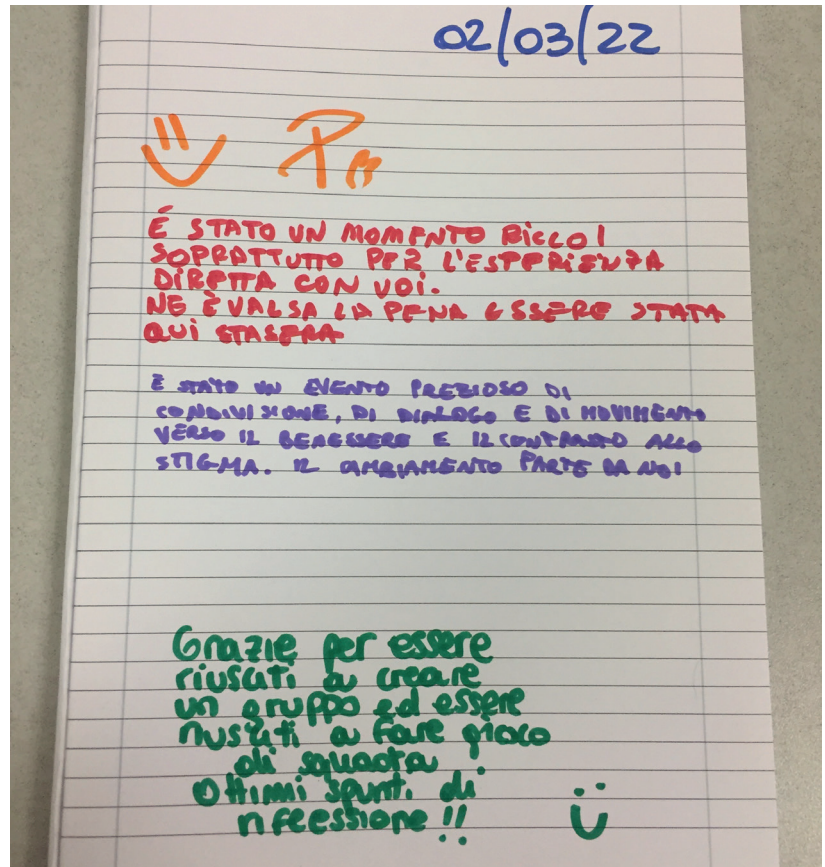 02/03/22
É STATO UN MOMENTO RICCO!
SOPRATTUTTO PER L'ESPERIENZA
DIRETTA CON VOI.
NE È VALSA LA PENA ESSERE STATA
QUI STASERA
È STATO UN EVENTO PREZIOSO DI
CONDIVISIONE, DI DIALOGO E DI MOVIMENTO
VERSO IL BENESSERE E IL CONTRASTO ALLO
STIGMA. IL CAMBIAMENTO PARTE DA NOI
Grazie per essere
riusciti a creare
un gruppo ed essere
riusciti a fare gioco
di squadra
Ottimi spunti di
riflessione!!